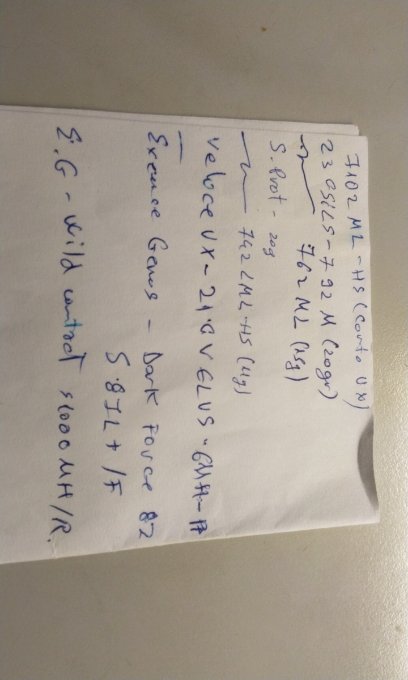 7102 ML - HS (Conto UX)
230SILS - 792 M (20gr)
762 ML (15g)
S. Prot - 20g
742 LML - HS (11g)
Veloce UX - 210 V ELUS - 6MH - 
Exence Genos - Dark Force 82
S.8IL + /F
E.G - wild contact S1000 MH/R.